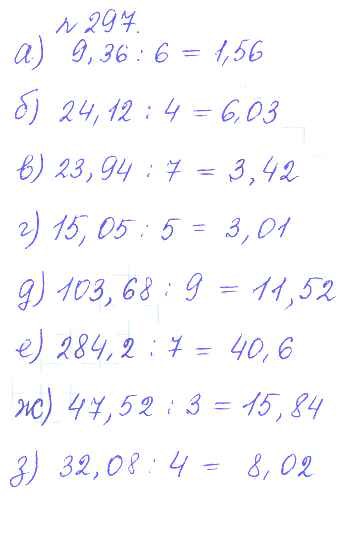 № 297.
а) 9,36 : 6 = 1,56
б) 24,12 : 4 = 6,03
в) 23,94 : 7 = 3,42
г) 15,05 : 5 = 3,01
д) 103,68 : 9 = 11,52
е) 284,2 : 7 = 40,6
ж) 47,52 : 3 = 15,84
з) 32,08 : 4 = 8,02